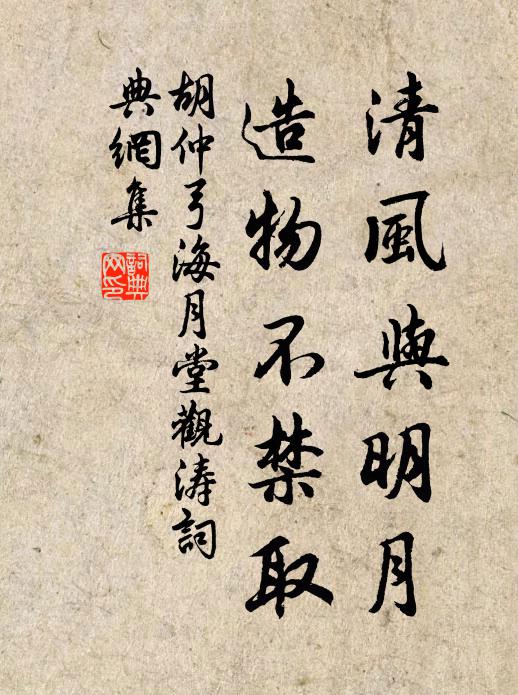 清風與明月
造物不禁取
胡仲弓海月堂觀涛詞
典網集
詞典
网印